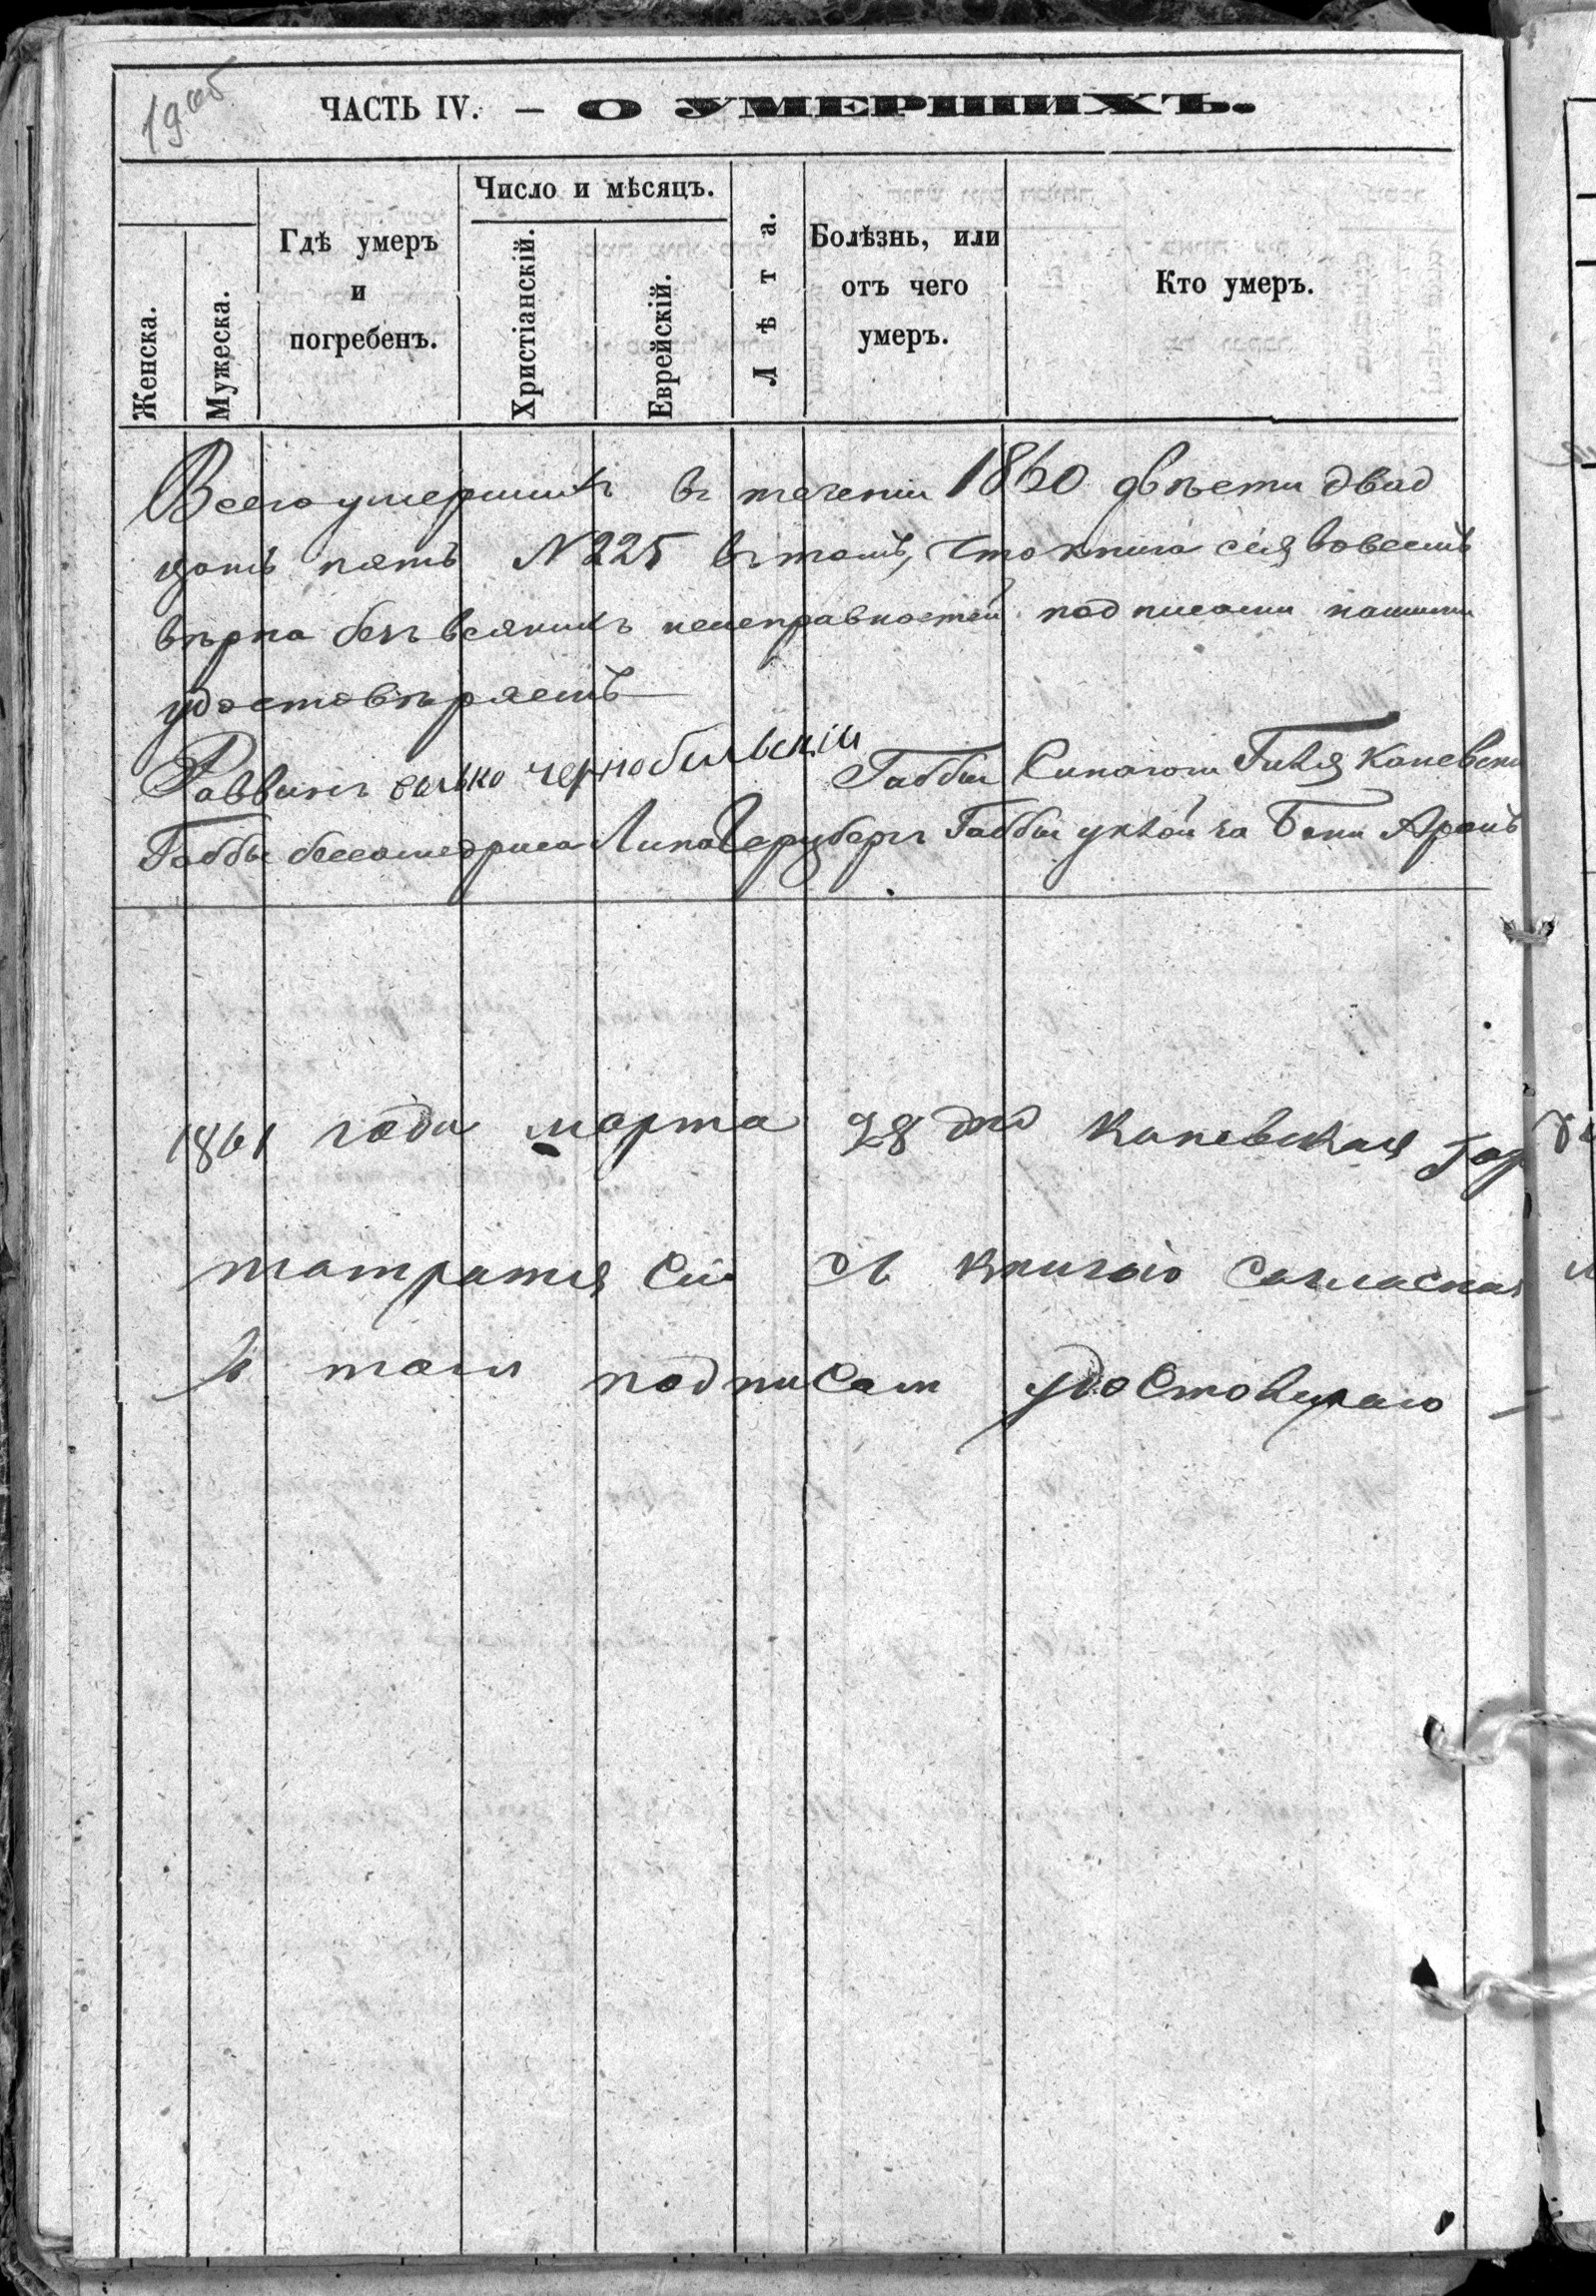 19 об
ЧАСТЬ IV. — О УМЕРШИХЪ.
Женска.
Мужеска.
Гдѣ умеръ
и
погребенъ.
Число и мѣсяцъ.
Христіанскій.
Еврейскій.
Лѣта.
Болѣзнь, или
отъ чего
умеръ.
Кто умеръ.
Всего умершихъ въ теченіи 1860 двѣсти двад
цать пять N 225 въ томъ, что книга сія вовсемъ
вѣрна безъ всякихъ неисправностей подписами нашими
удостовѣряемъ
Раввинъ чернобильскій Габбы Синагоги Каневски
Габбы Габбы Аронъ
1861 года марта 28 дня Каневская Гор
ратуша сію съ книгаю согласная
въ томъ подписом удостовираю